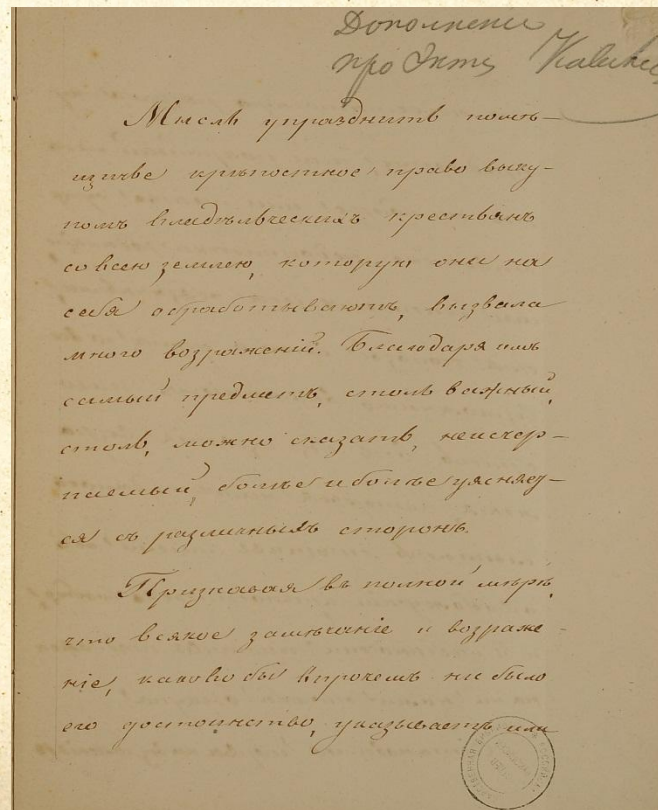 Дополнение
про Экту Кавели
Мысль упразднить помѣ-
щичье крѣпостное право выку-
помъ владѣльческихъ крестьянъ
со всею землею, которую они на
себя обработываютъ, вызвала
много возраженій. Благодаря имъ
самый предметъ, столь важный,
столь, можно сказать, неисчер-
паемый, болѣе и болѣе уясняет-
ся съ различныхъ сторонъ.
Признавая въ полной мѣрѣ,
что всякое замѣчаніе и возраже-
ніе, каково бы впрочемъ ни было
его достоинство, указываетъ или